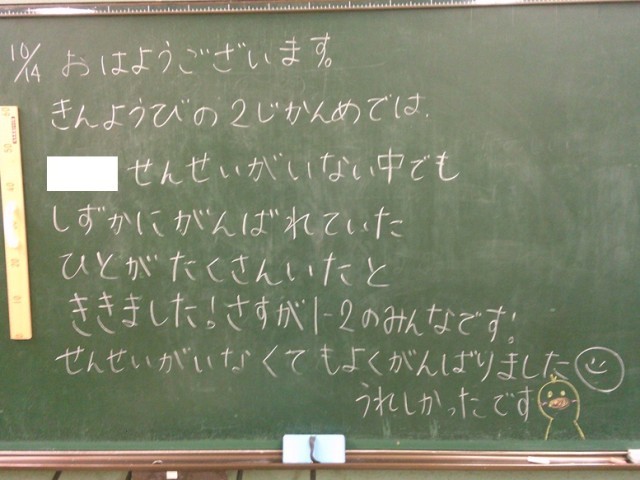 10/14 おはようございます。
きんようびの2じかんめでは、
せんせいがいない中でも
しずかにがんばれていた
ひとがたくさんいたと
ききました！さすが1-2のみんなです！
せんせいがいなくてもよくがんばりました
うれしかったです